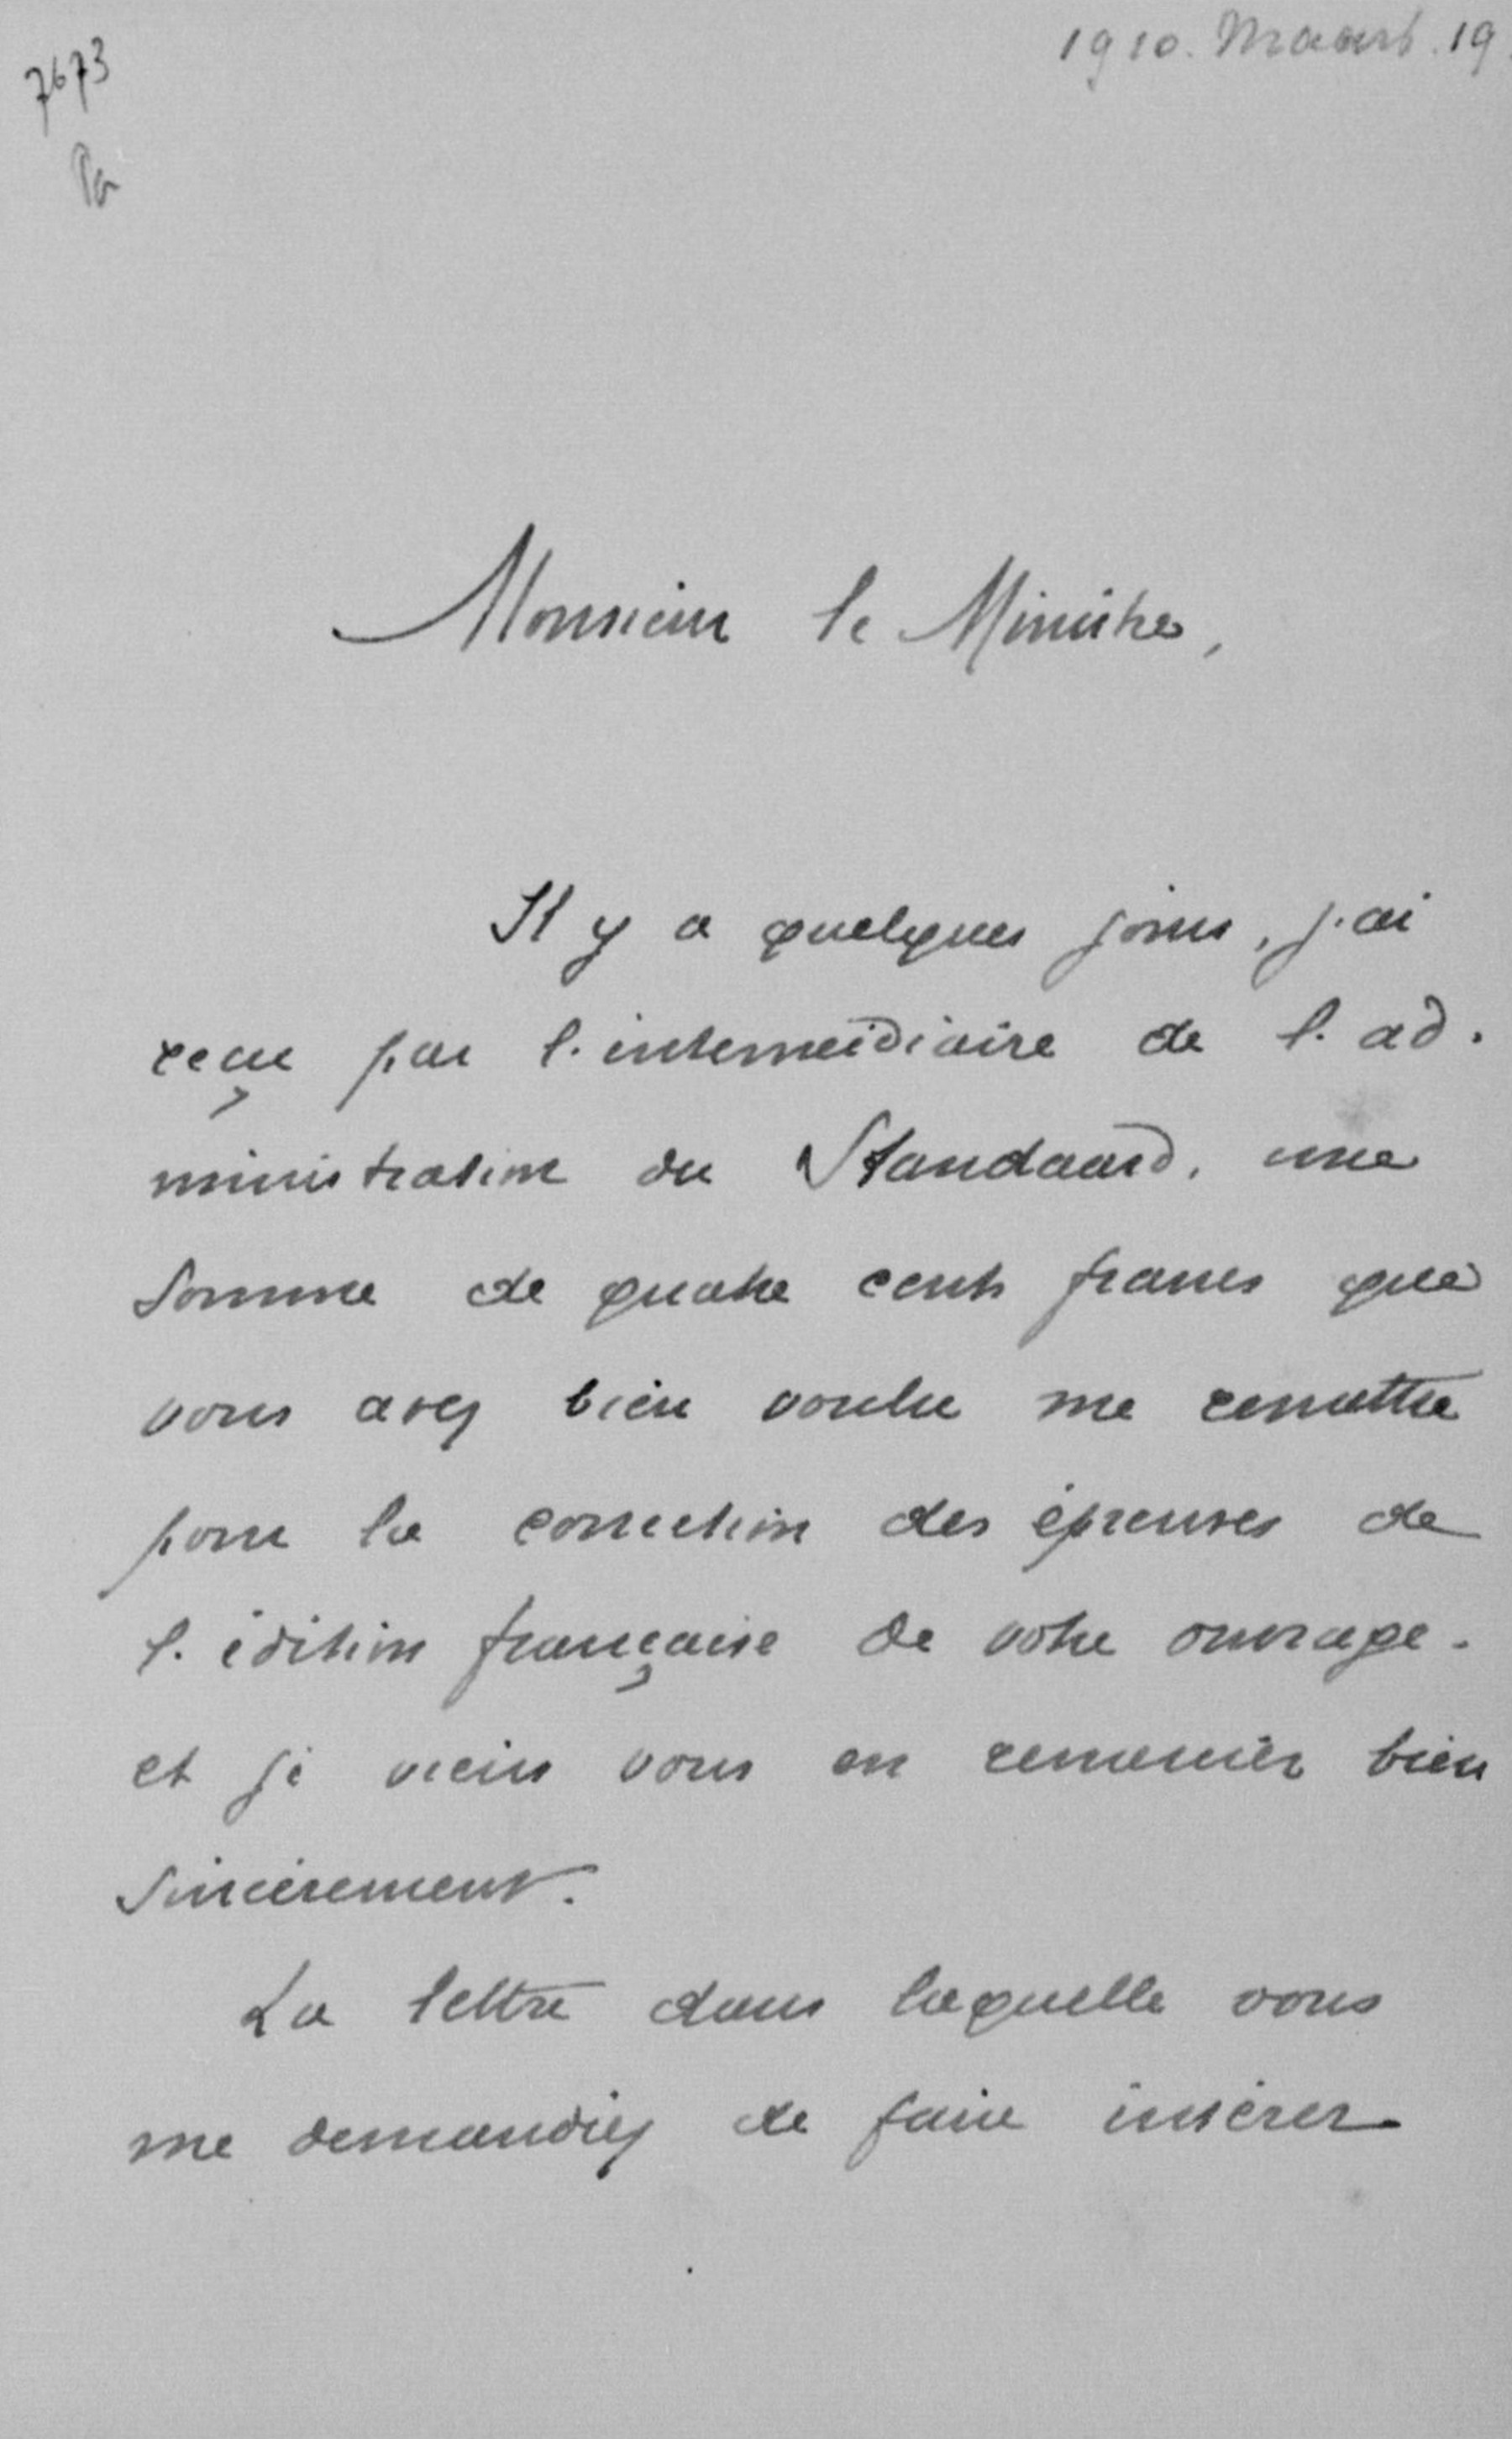 1910. Maart. 19.
7673
Pa
Monsieur le Ministre,
Il y a quelques jours, j'ai
reçu par l'intermédiaire de l'ad-
ministration du Standaard, une
somme de quatre cents francs que
vous avez bien voulu me remettre
pour la correction des épreuves de
l'édition française de votre ouvrage.
et je viens vous en remercier bien
sincèrement.
La lettre dans laquelle vous
me demandiez de faire insérer